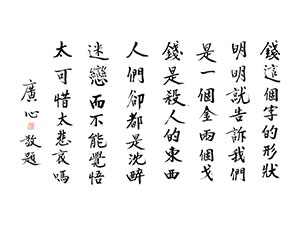 錢這個字的形狀
明明就告訴我們
是一個金兩個戈
錢是殺人的東西
人們卻都是沈醉
迷戀而不能覺悟
太可惜太悲哀嗎
廣心敬題